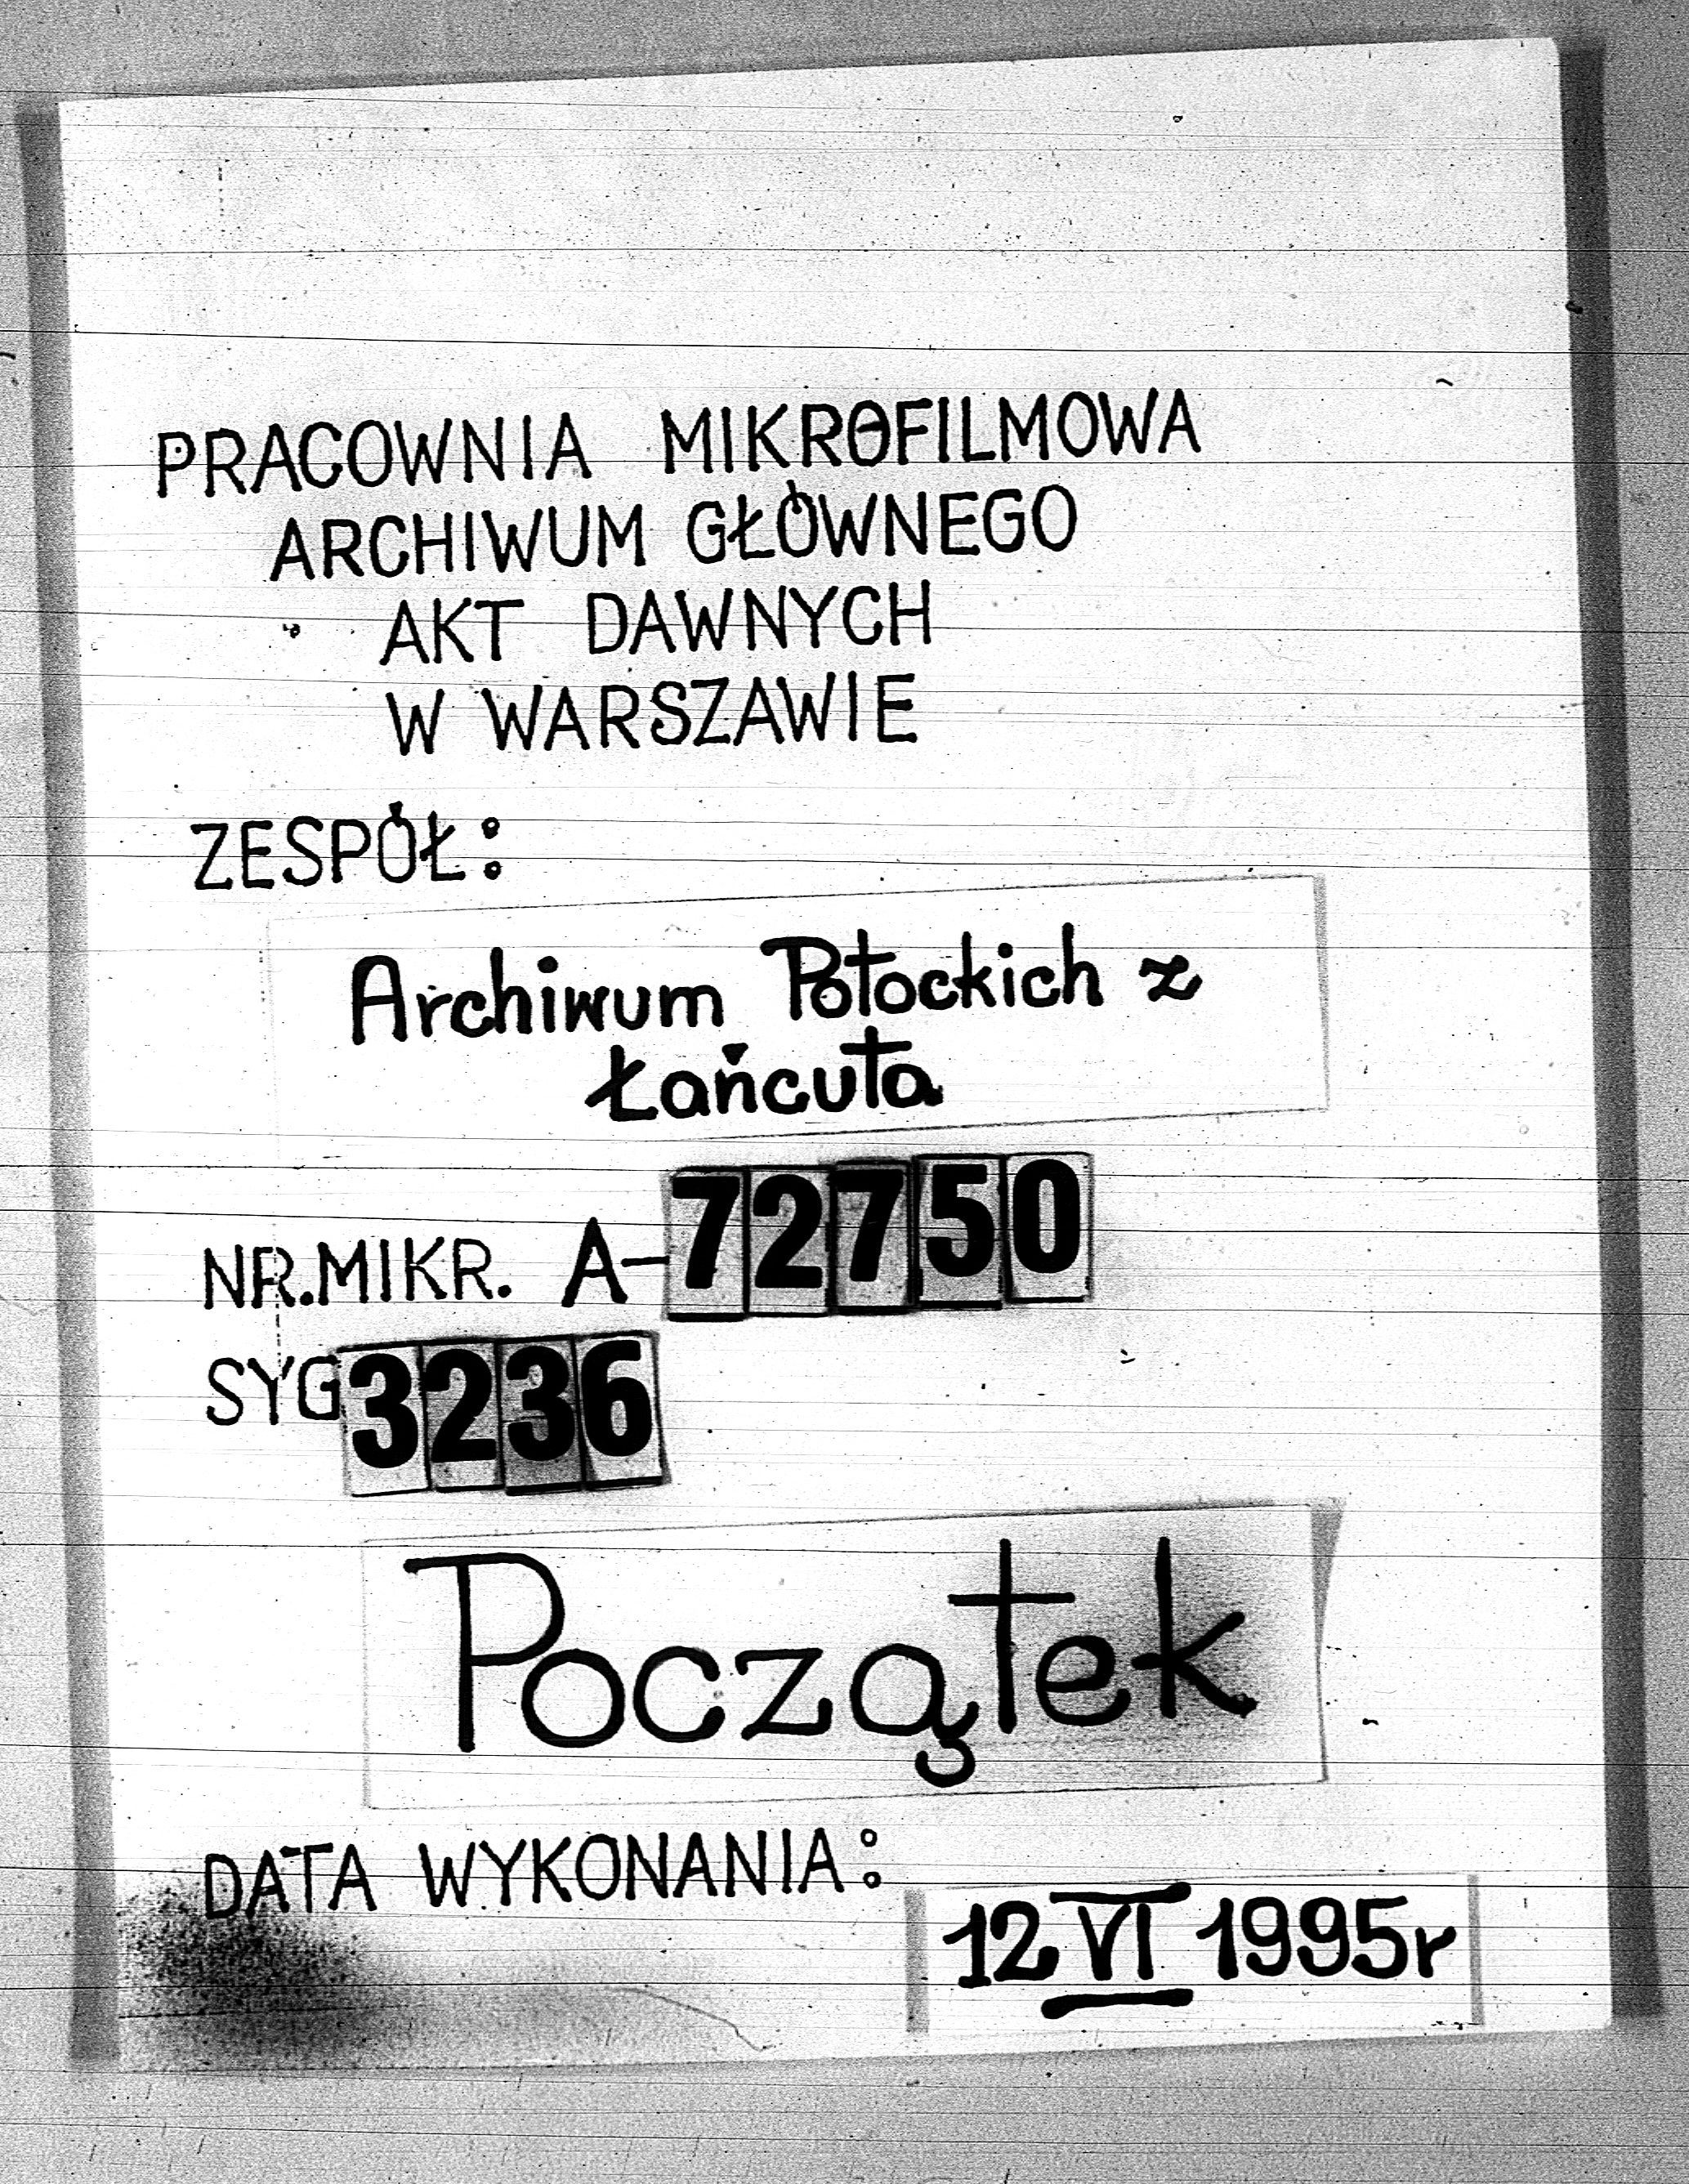 PRACOWNIA MIKROFILMOWA
ARCHIWUM GŁÓWNEGO
AKT DAWNYCH
W WARSZAWIE
ZESPÓŁ:
Archiwum Potockich z
Łańcuta
NR.MIKR. A-72750
SYG 3236
Początek
DATA WYKONANIA:
12 VI 1995r